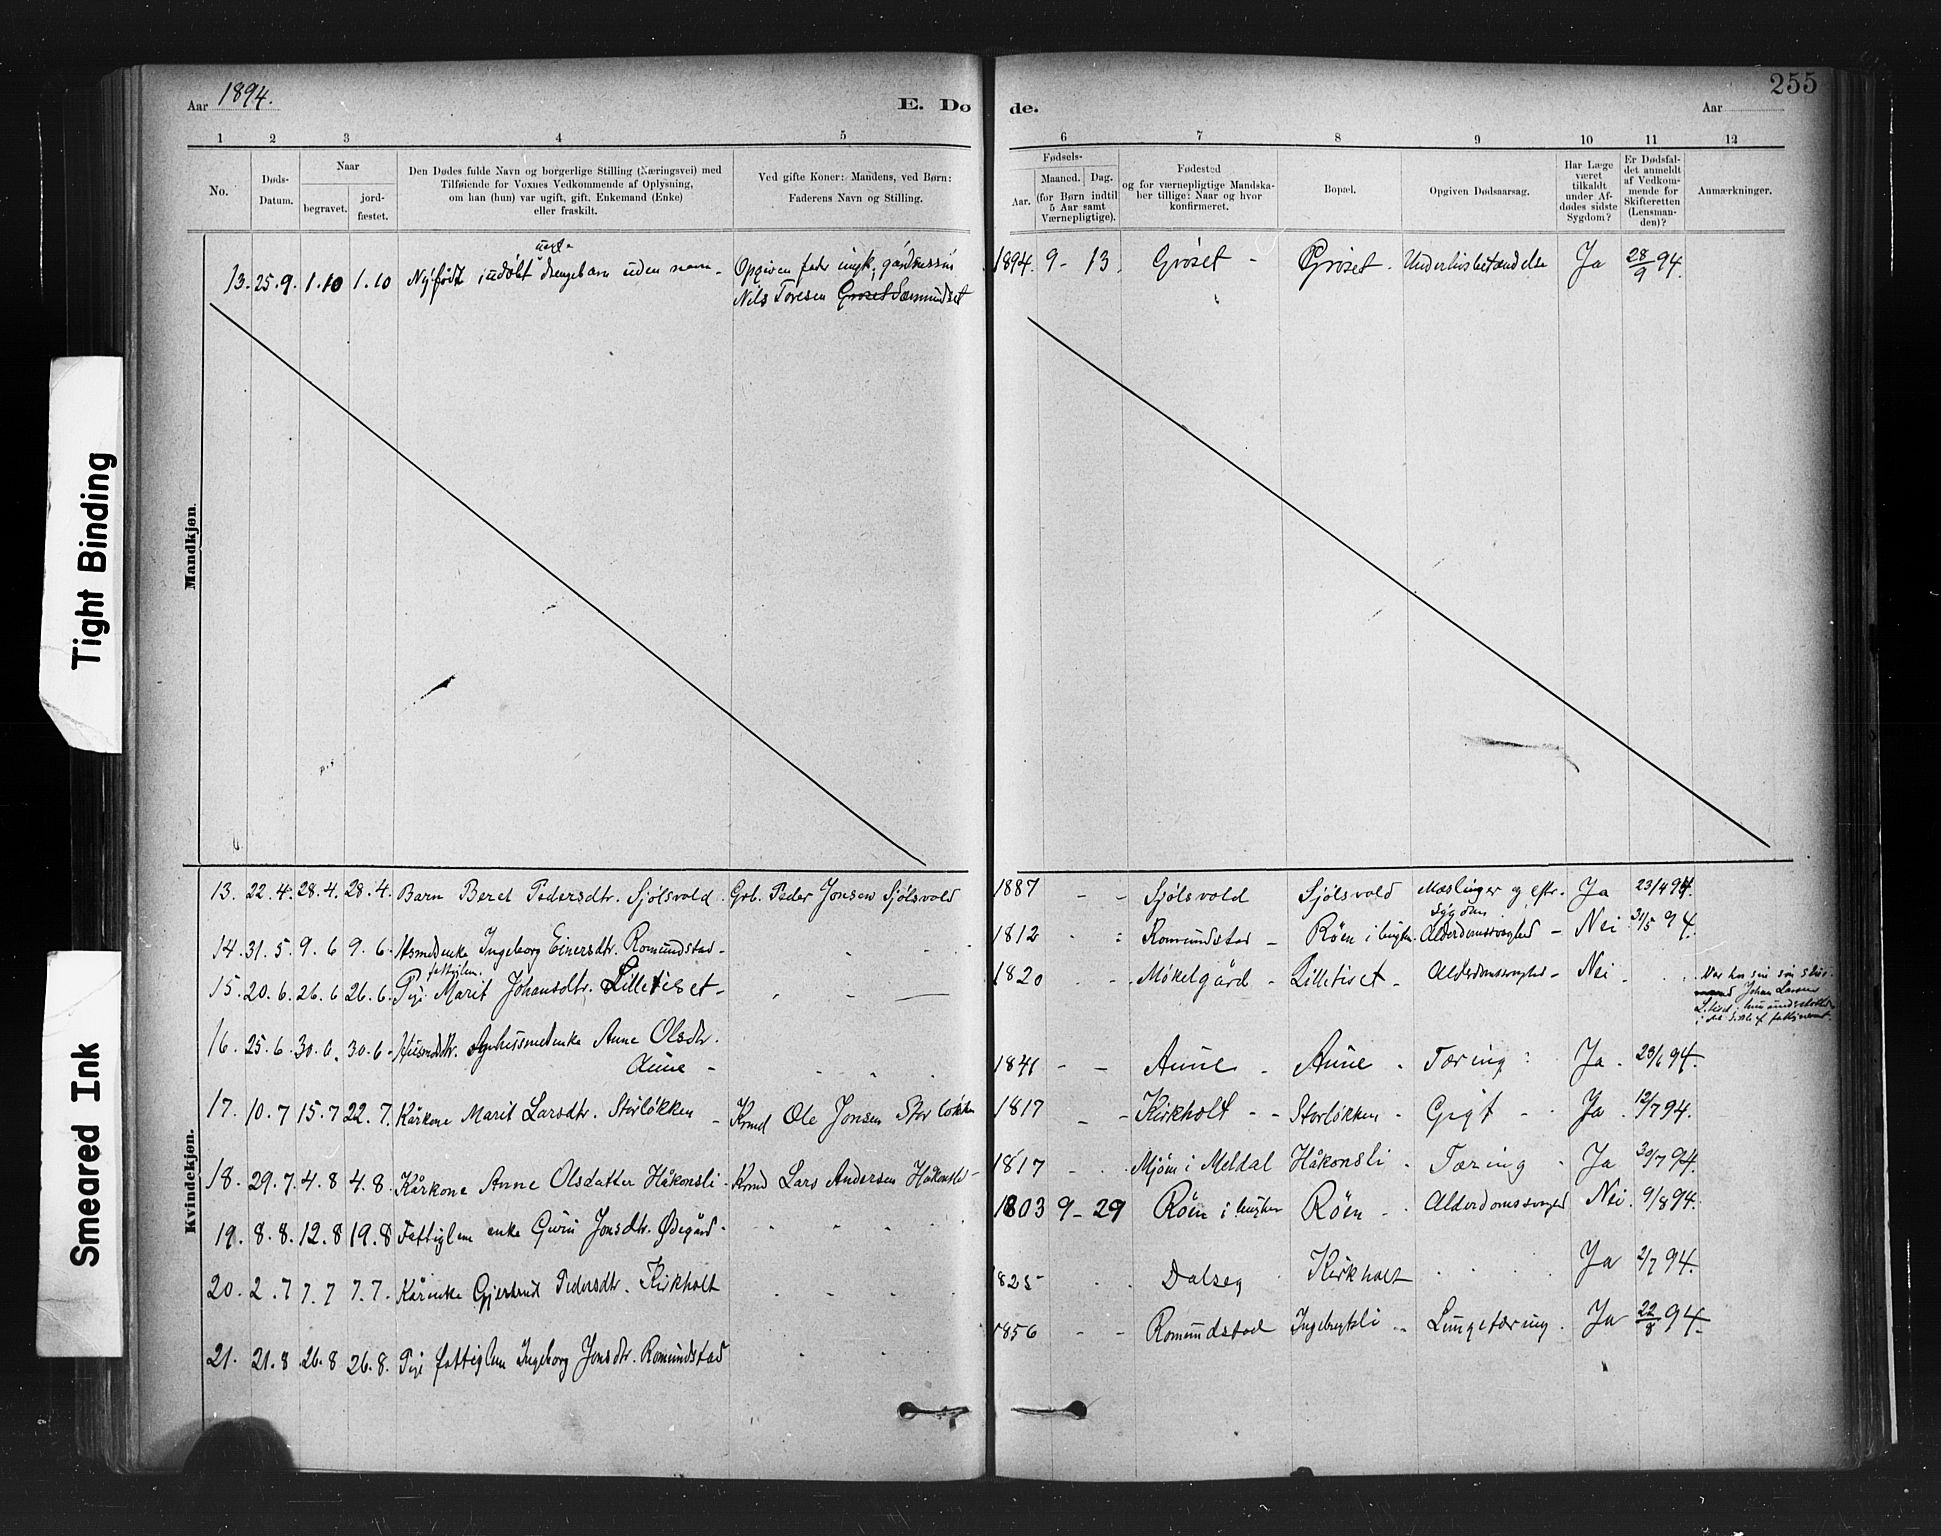 255
Aar 1894.
E. Dø de.
Aar
1 2 3 4 5 6 7 8 9 10 11 12
No.
Døds-Datum.
Naar
begravet.
jord-fæstet.
Den Dødes fulde Navn og borgerlige Stilling (Næringsvei) med
Tilføiende for Voxnes Vedkommende af Oplysning,
om han (hun) var ugift, gift, Enkemand (Enke)
eller fraskilt.
Ved gifte Koner: Mandens, ved Børn:
Faderens Navn og Stilling.
Fødsels-
Aar.
Maaned. Dag.
(for Børn indtil
5 Aar samt
Værnepligtige).
Fødested
og for værnepligtige Mandska-
ber tillige: Naar og hvor
konfirmeret.
Bopæl.
Opgiven Dødsaarsag.
Har Læge
været
tilkaldt
under Af-
dødes sidste
Sygdom?
Er Dødsfal-
det anmeldt
af Vedkom-
mende for
Skifteretten
(Lensman-
den)?
Anmærkninger.
Mandkjøn.
13. 25.9. 1.10 1.10 Nyfødt udøbt drengebarn uden navn - Opgiven fader ungk. gårdmssøn 1894. 9 - 13. Grøset - Grøset. Underlivsbetændelse Ja 28/9 94.
Nils Toresen Grøset Sæmundset
Kvindekjøn.
13. 22.4. 28.4. 28.4. Barn Beret Pedersdtr. Sjølsvold. Grb. Peder Jonsen Sjølsvold 1887 - - Sjølsvold Sjølsvold Mæslinger og eftr. Sygdom. Ja 23/4 94.
14. 31.5. 9.6 9.6. Hsmdenke Ingeborg Einersdtr. Romundstad - 1812 Romundstad - Røen i bugten. Alderdomssvaghed - Nei 31/5 94.
15. 20.6. 26.6 26.6. Pige fattiglem. Marit Johansdtr. Lilletiset - 1820 Mokelgård - Lilletiset - Alderdomssvaghed - Nei - Var hos sin
Johan Larsen
16. 25.6. 30.6. 30.6. Anne Olsdtr. 1841 - - Aune - Aune - Tæring Ja. 23/6 94.
Aune -
17. 10.7 15.7 22.7. Kårkone Marit Larsdtr. Storløkken - Krmd Ole Jonsen Storløkken 1817 - - Kirkholt - - Storløkken - Gigt - Ja. 12/7 94.
18. 29.7. 4.8 4.8. Kårkone Anne Olsdatter Håkonsli - Krmd Lars Andersen Håkonsli - 1817 - Mjøen i Meldal Håkonsli - Tæring - Ja 30/7 94.
19. 8.8. 12.8 19.8 Fattiglem enke Guru Jonsdtr. Ødegård - 1803 9 - 29 Røen i bugten Røen - Alderdomssvaghed Nei. 9/8 94.
20. 2.7 7.7 7.7. Kårenke Gjertrud Pedersdtr. Kirkholt 1825 Dalseg Kirkholt Ja 2/7 94.
21. 21.8 26.8 26.8. Pige fattiglem Ingeborg Jonsdtr. Romundstad 1856 - - Romundstad Ingebrigtsli - Lungetæring. Ja 22/8 94.
Tight Binding
Smeared Ink